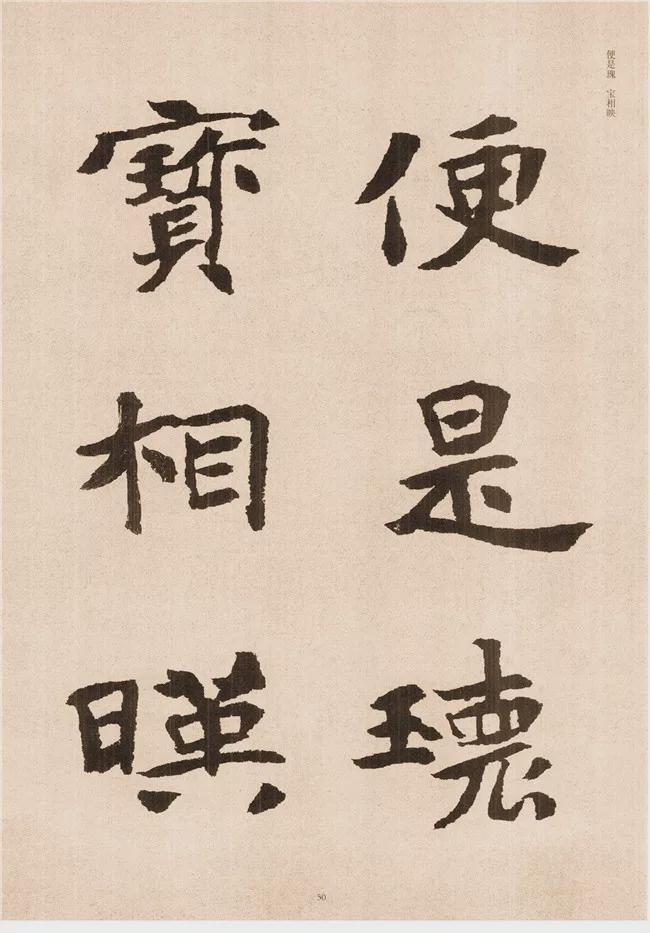 便是瑰 宝相映
便是瓌
寶相暎
50